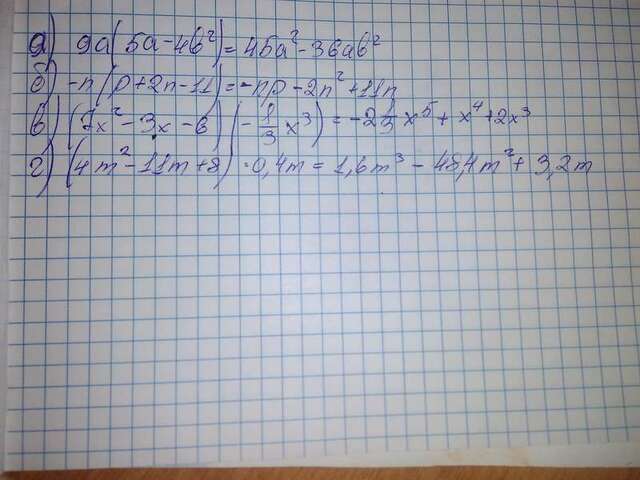 а) 9a(5a-4b²)=45a²-36ab²
б) -n(p+2n-11)=-np-2n²+11n
в) (7x²-3x-6)(-1/3x³)=-2 1/3x⁵+x⁴+2x³
г) (4m²-11m+8)·0,4m=1,6m³-48,4m²+3,2m